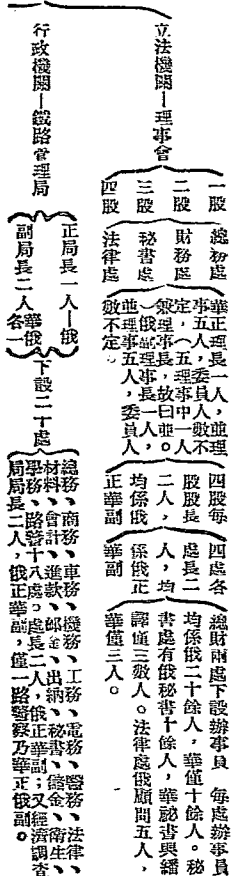 立法機關—理事會
一股 總務處
二股 財務處
三股 祕書處
四股 法律處
華正理長一人，並理
事五人，委員人數不
定，（五理事中一人
兼理事長，故曰並。
（俄副理事長一人，
並理事五人，委員人
數不定。
四股每
股股長
二人，
均係俄
正華副
四處各
處長二
人，均
係俄正
華副
總財兩處下設辦事員　每處辦事員
均係俄二十餘人，華僅十餘人。秘
書處有俄秘書十餘人，華秘書與繙
譯僅三數人。法律處俄顧問五人，
華僅三人。
行政機關—鐵路管理局
正局長一人—俄
副局長二人 華俄各一
下設二十處
總務、商務、車務、機務、工務、電務、醫務、法律、
材料、會計、進款、出納、秘書、衛生、
學務、路警十八處。處長二人，俄正華副；又經濟調查
局局長二人，俄正華副，僅一路警察乃華正俄副。